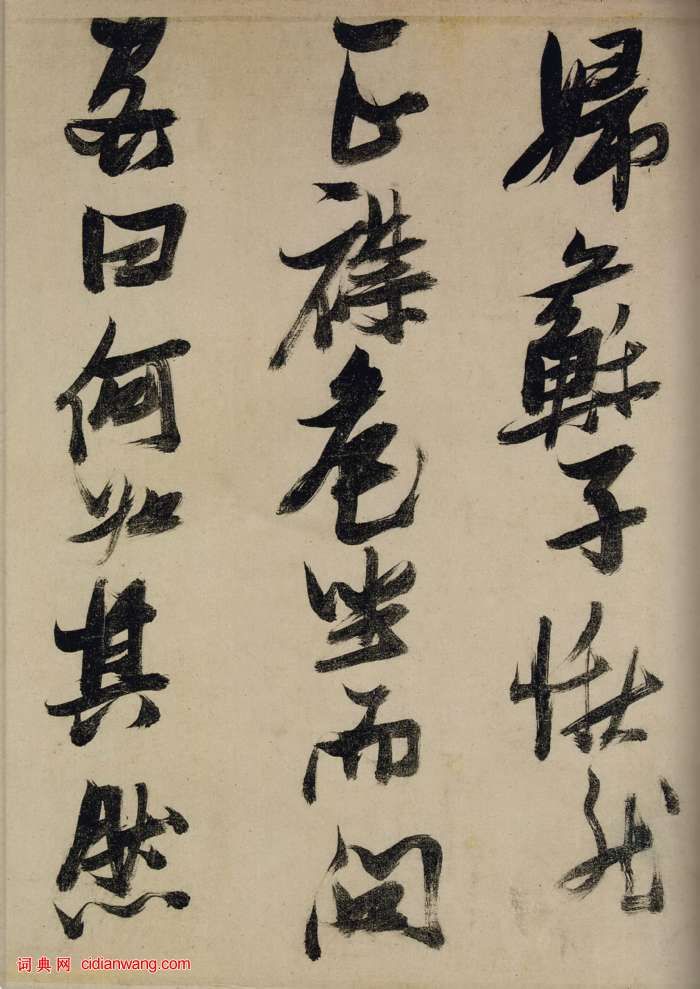 婦蘇子愀然
正襟危坐而問
客曰何為其然
词典网 cidianwang.com